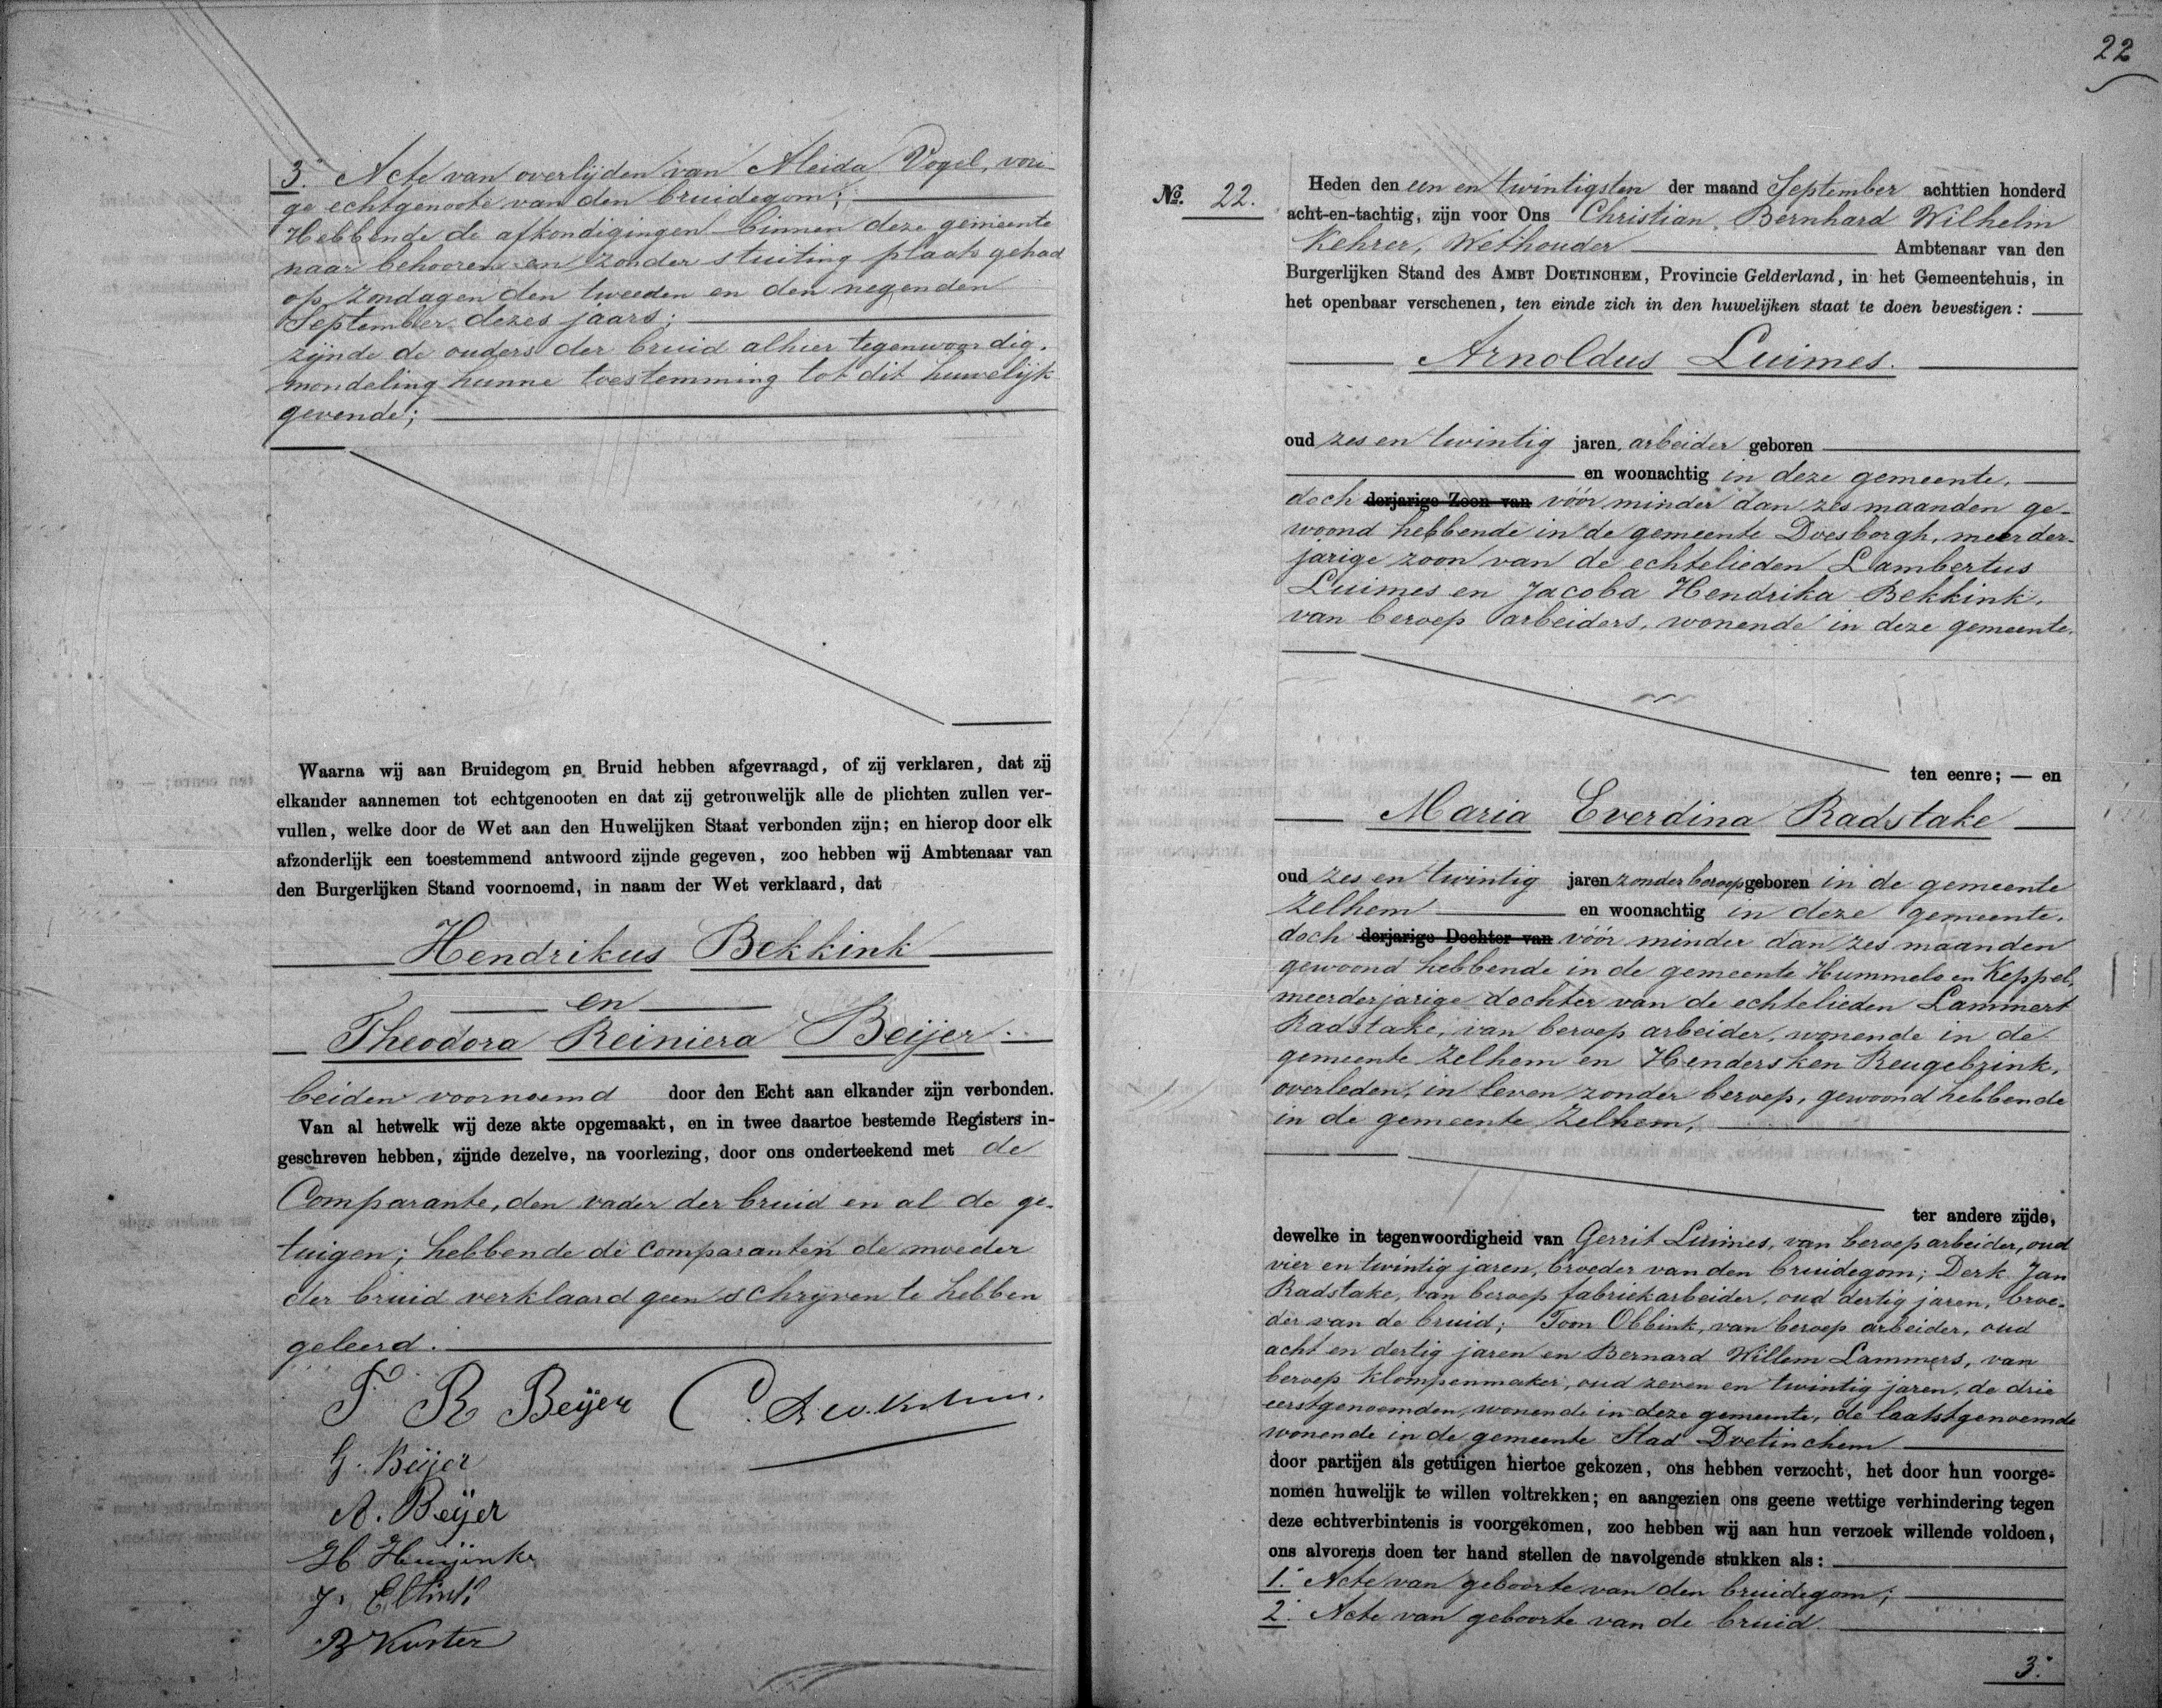 3.° Acte van overlijden van Aleida Vogel, vori-
ge echtgenoote van den bruidegom;
Hebbende de afkondigingen binnen deze gemeente
naar behooren en zonder stuiting plaats gehad
op zondagen den tweeden en den negenden
September dezes jaars;
zijnde de ouders der bruid alhier tegenwoordig.
mondeling hunne toestemming tot dit huwelijk
gevende;
Waarna wij aan Bruidegom en Bruid hebben afgevraagd, of zij verklaren, dat zij
elkander aannemen tot echtgenooten en dat zij getrouwelijk alle de plichten zullen ver-
vullen, welke door de Wet aan den Huwelijken Staat verbonden zijn; en hierop door elk
afzonderlijk een toestemmend antwoord zijnde gegeven, zoo hebben wij Ambtenaar van
den Burgerlijken Stand voornoemd, in naam der Wet verklaard, dat
Hendrikus Bekkink
en
Theodora Reiniera Beijer.
beiden voornoemd door den Echt aan elkander zijn verbonden.
Van al hetwelk wij deze akte opgemaakt, en in twee daartoe bestemde Registers in-
geschreven hebben, zijnde dezelve, na voorlezing, door ons onderteekend met de
Comparante, den vader der bruid en al de ge-
tuigen; hebbende de comparant en de moeder
der bruid verklaard geen schrijven te hebben
geleerd.
T R Beijer
G. Beijer
A. Beijer
H Huijink
J.
B Kuster
22
No. 22.
Heden den een en twintigsten der maand September achttien honderd
acht-en-tachtig, zijn voor Ons Christian Bernhard Wilhelm
Kehrer, Wethouder Ambtenaar van den
Burgerlijken Stand des Ambt Doetinchem, Provincie Gelderland, in het Gemeentehuis, in
het openbaar verschenen, ten einde zich in den huwelijken staat te doen bevestigen:
Arnoldus Luimes.
oud zes en twintig jaren, arbeider geboren
en woonachtig in deze gemeente,
doch derjarige Zoon van vóór minder dan zes maanden ge-
woond hebbende in de gemeente Doesborgh, meerder-
jarige zoon van de echtelieden Lambertus
Luimes en Jacoba Hendrika Bekkink,
van beroep arbeiders, wonende in deze gemeente.
ten eenre; — en
Maria Everdina Radstake
oud zes en twintig jaren zonder beroep geboren in de gemeente
Zelhem en woonachtig in deze gemeente,
doch derjarige Dochter van vóór minder dan zes maanden
gewoond hebbende in de gemeente Hummelo en Keppel,
meerderjarige dochter van de echtelieden Lammert
Radstake, van beroep arbeider, wonende in de
gemeente Zelhem en Hendersken Reugebrink,
overleden, in leven zonder beroep, gewoond hebbende
in de gemeente Zelhem,
ter andere zijde,
dewelke in tegenwoordigheid van Gerrit Luimes, van beroep arbeider, oud
vier en twintig jaren, broeder van den bruidegom; Derk Jan
Radstake, van beroep fabriekarbeider, oud dertig jaren, broe-
der van de bruid; Toon Obbink, van beroep arbeider, oud
acht en dertig jaren en Bernard Willem Lammers, van
beroep klompenmaker, oud zeven en twintig jaren, de drie
eerstgenoemden, wonende in deze gemeente, de laatstgenoemde
wonende in de gemeente Stad Doetinchem
door partijen als getuigen hiertoe gekozen, ons hebben verzocht, het door hun voorge-
nomen huwelijk te willen voltrekken; en aangezien ons geene wettige verhindering tegen
deze echtverbintenis is voorgekomen, zoo hebben wij aan hun verzoek willende voldoen,
ons alvorens doen ter hand stellen de navolgende stukken als:
1.° Acte van geboorte van den bruidegom;
2.° Acte van geboorte van de bruid
3.°